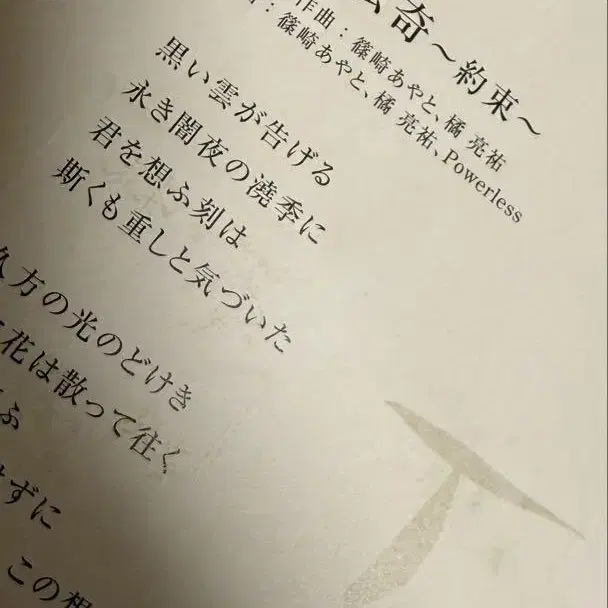 奇～約束～
作曲：篠崎あやと、橘 亮祐
：篠崎あやと、橘 亮祐、Powerless
黒い雲が告げる
永き闇夜の澆季に
君を想ふ刻は
斯くも重しと気づいた
久方の光のどけき
花は散って往く
ふ
ずに
この想